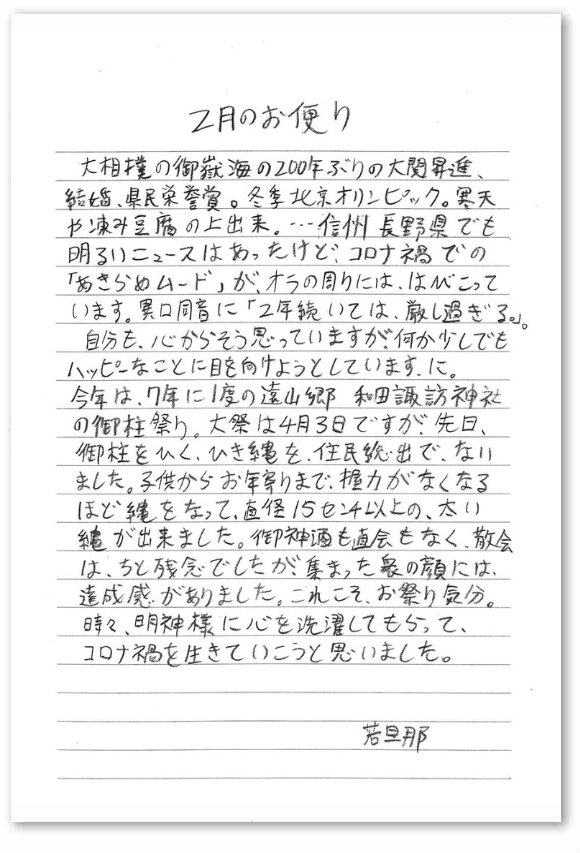 2月のお便り
大相撲の御嶽海の200年ぶりの大関昇進、
結婚、県民栄誉賞。冬季北京オリンピック。寒天
や凍み豆腐の上出来。…信州長野県でも
明るいニュースはあったけど、コロナ禍での
「あきらめムード」が、オラの周りには、はびこって
います。異口同音に「2年続いては、厳し過ぎる。」。
自分も、心からそう思っていますが、何か少しでも
ハッピーなことに目を向けようとしています、に。
今年は、7年に1度の遠山郷 和田諏訪神社
の御柱祭り。大祭は4月3日ですが、先日、
御柱をひく、ひき縄を、住民総出で、ない
ました。子供からお年寄りまで、握力がなくなる
ほど縄をなって、直径15センチ以上の、太い
縄が出来ました。御神酒も直会もなく、散会
は、ちと残念でしたが、集まった衆の顔には、
達成感がありました。これこそ、お祭り気分。
時々、明神様に心を洗濯してもらって、
コロナ禍を生きていこうと思いました。
若旦那